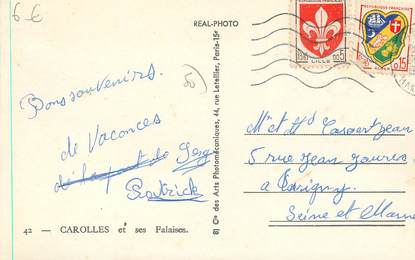 6-€
REAL-PHOTO
REPUBLIQUE FRANÇAISE
LILLE
0,05
0,15
Bons souvenirs
de Vacances
Patrick
8) Cie des Arts Photomécaniques, 44, rue Letellier, Paris-15e
Mr et Mme Jean
5 rue Jean Jaurès
a Savigny
Seine et Marne
42 — CAROLLES et ses Falaises.